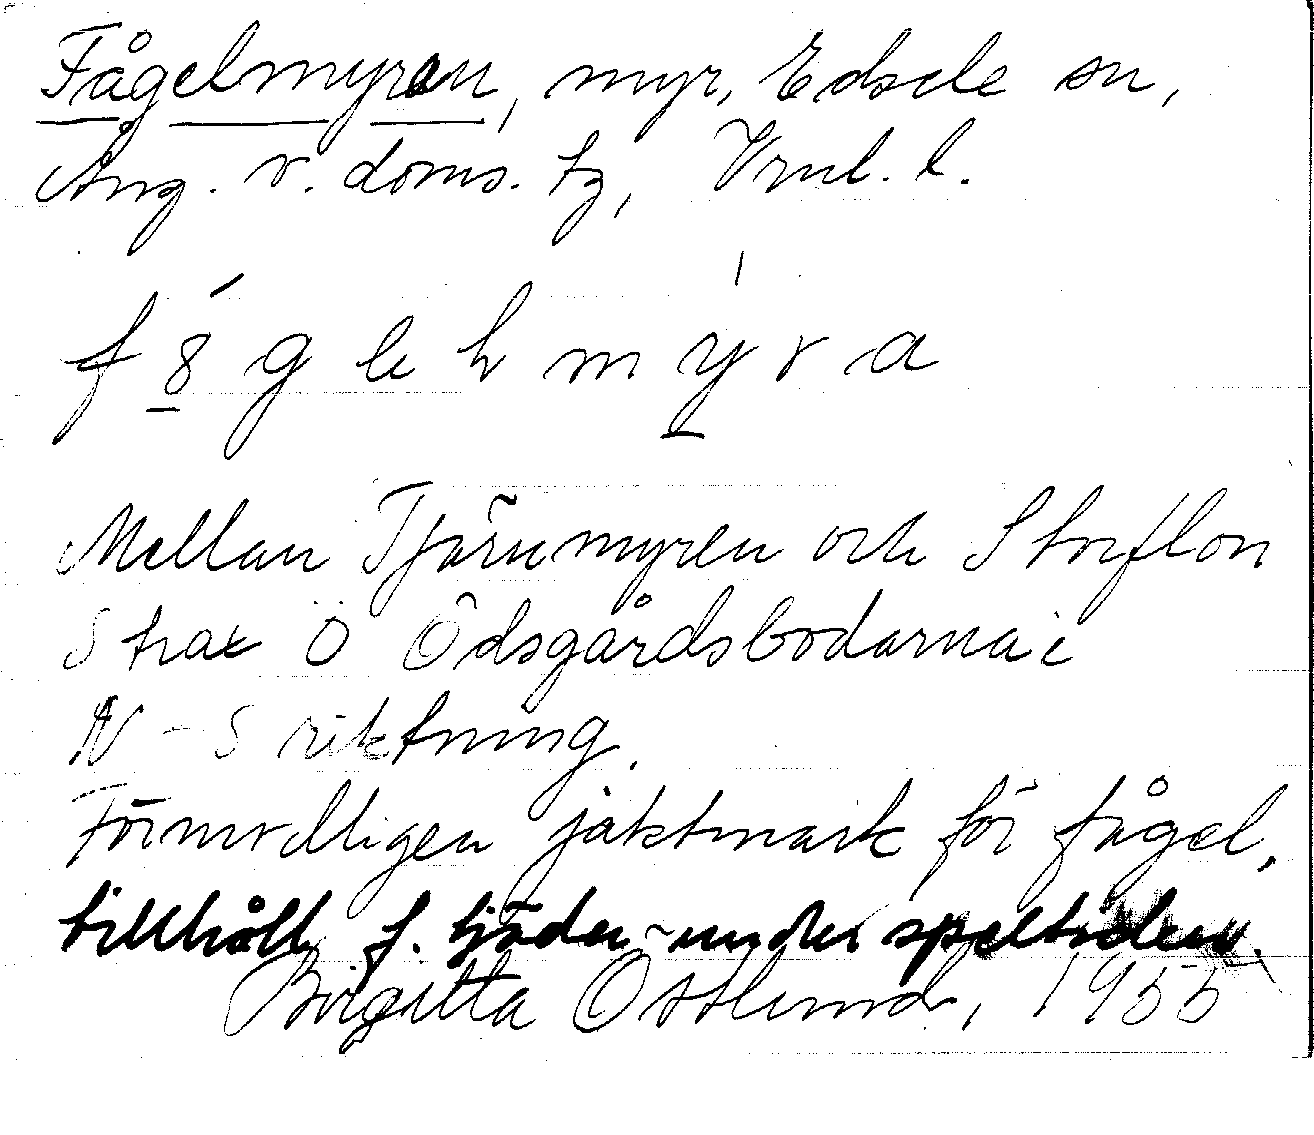 Fågelmyren, myr, Edsele sn,
Ång. v. doms. tg, Vrnl. l.
Mellan Tjärnmyren och Storflon
Strax Ö Ödsgårdsbodarna i
N - S riktning.
Förmodligen jaktmark för fågel,
tillhåll f. tjäder under speltiden.
Birgitta Östlund, 1955